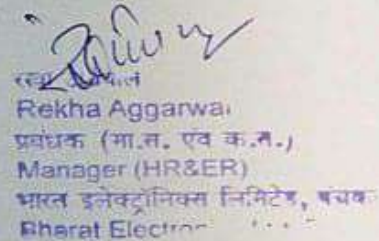 Rekha Aggarwal
प्रबंधक (मा.स. एवं क.सं.)
Manager (HR&ER)
भारत इलेक्ट्रॉनिक्स लिमिटेड,
Bharat